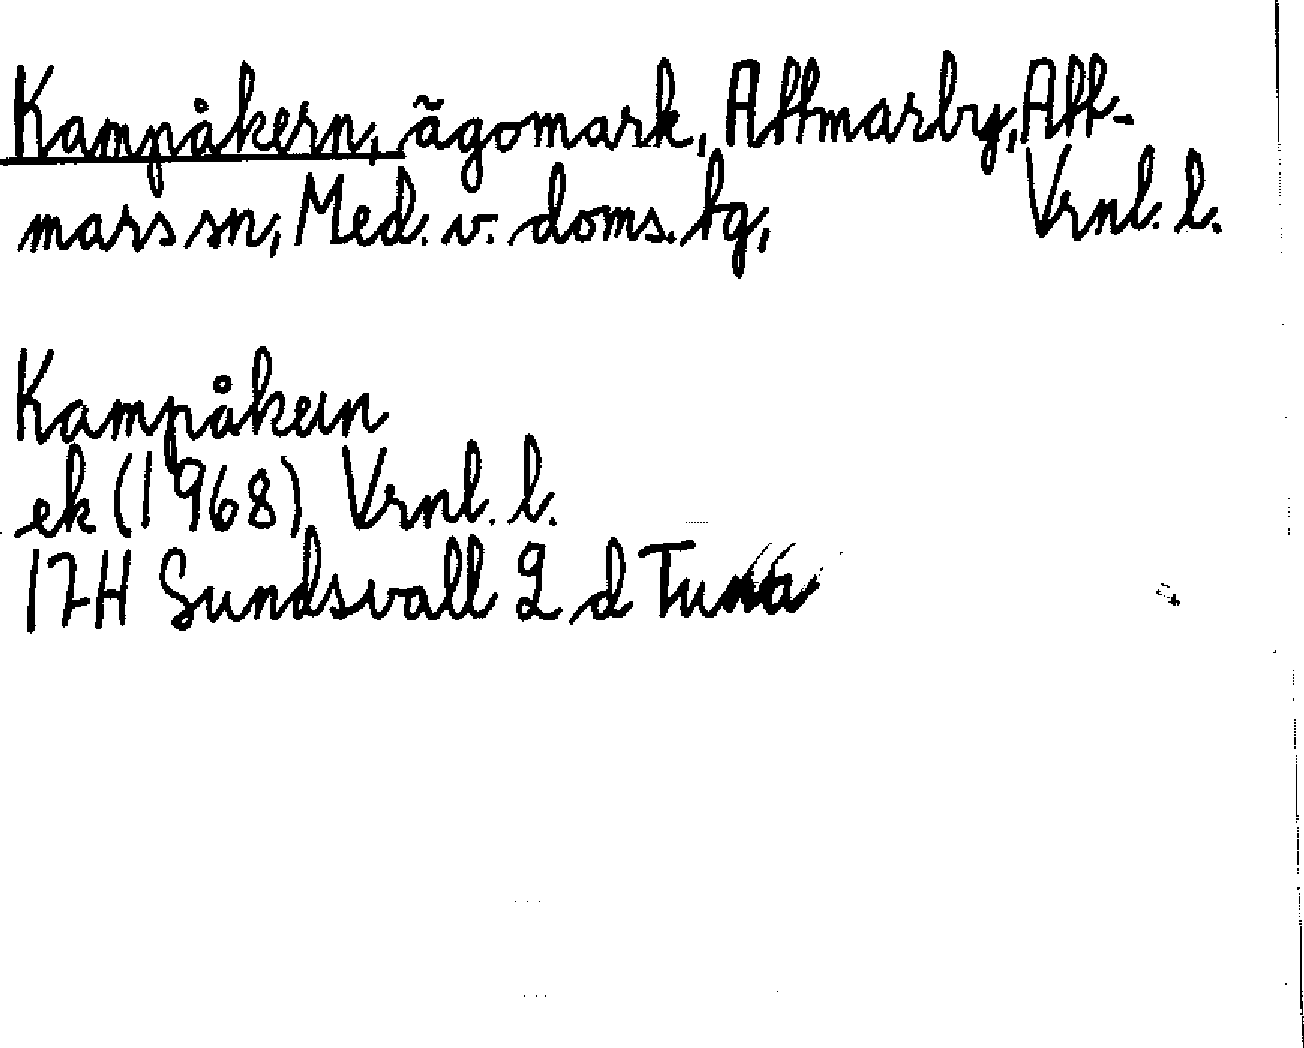 Kampåkern, ägomark, Attmarby, Att-
mars sn, Med. v. doms. tg, Vrnl. l.
Kampåkern
ek (1968) Vrnl. l.
17H Sundsvall 2 d Tuna